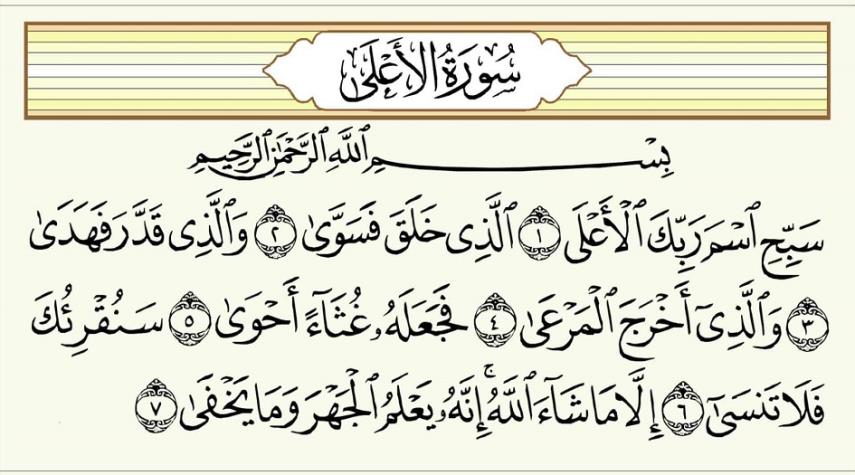 سُورَةُ الأَعْلَى
بِسْمِ ٱللَّهِ ٱلرَّحْمَٰنِ ٱلرَّحِيمِ
سَبِّحِ ٱسْمَ رَبِّكَ ٱلْأَعْلَى ١ ٱلَّذِى خَلَقَ فَسَوَّىٰ ٢ وَٱلَّذِى قَدَّرَ فَهَدَىٰ
٣ وَٱلَّذِىٓ أَخْرَجَ ٱلْمَرْعَىٰ ٤ فَجَعَلَهُۥ غُثَآءً أَحْوَىٰ ٥ سَنُقْرِئُكَ
فَلَا تَنسَىٰٓ ٦ إِلَّا مَا شَآءَ ٱللَّهُ ۚ إِنَّهُۥ يَعْلَمُ ٱلْجَهْرَ وَمَا يَخْفَىٰ ٧